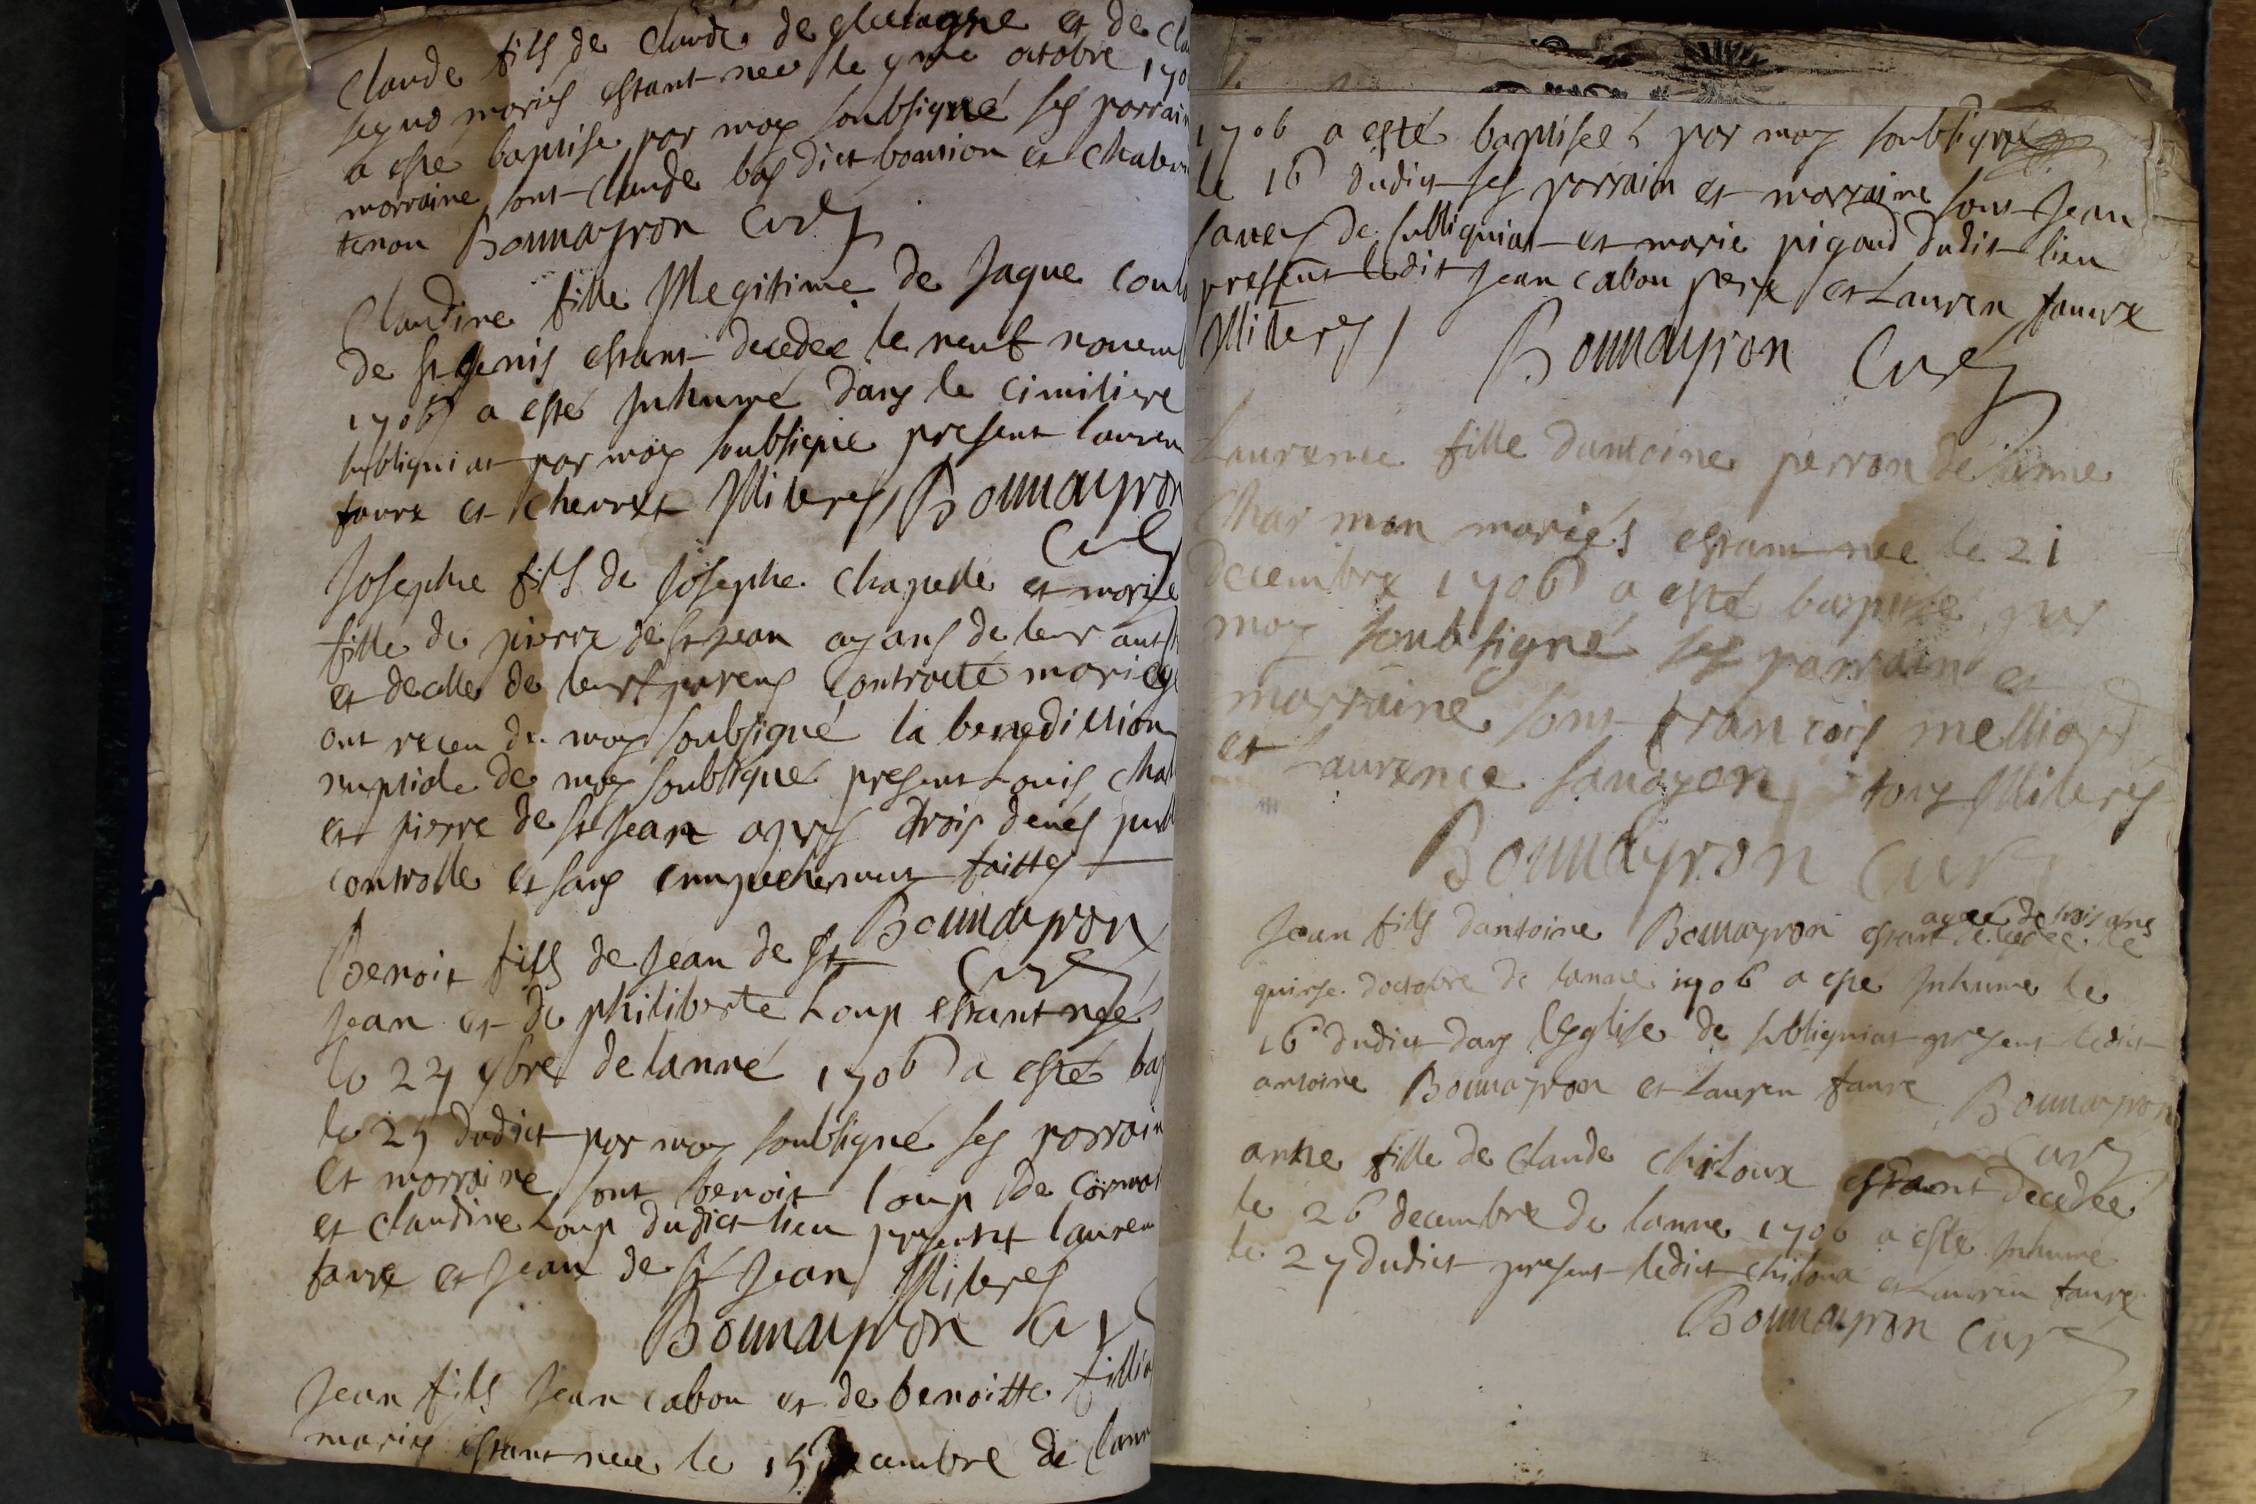 Claude fils de claude de glatagne et de cla
mariés estant neé le 9me octobre 170
a esté baptise par moy soubsigné ses parrain
marraine sont claude bas dict et
tenou Bonnayron Curé
Claudine fille Illegitime de Jaque
de st genis estant decedee le neuf novemb
1706 a esté Inhumé dans le cimitiere
subliquiat par moy soubsigné present lauren
favre et chevret Illiterés Bonnayron
Curé
Josephe fils de Josephe chapelle et marie
fille de pierre de st jean ayans de leur
et de celle de leurs parens contracté mariage
ont receu de moy soubsigné la benediction
nuptiale de moy soubsigné present Louis
et pierre de st jean apres trois
controlle et sans empechement faittes
Bonnayron
Benoit fils de Jean de st
Curé
Jean et de philiberte Loup estant neé
le 24 9bre de lanné 1706 a esté bap
le 25 dudict par moy soubsigné ses parrain
et marraine sont benoit loup de
et claudine Loup dudict lieu present lauren
favre et Jean de st Jean Illiteres
Bonnayron Curé
Jean fils Jean cabou et de benoitte
mariés estant neé le 15 decembre de lann
1706 a esté baptiseé par moy soubsigné
le 16 dudict ses parrain et marraine sont Jean
de subliquiat et marie pigaud dudit lieu
present ledit Jean cabou pere et Lauren favre
Illiterés Bonnayron Curé
Laurence fille dantoine perron de anne
Charmon mariés estant neé le 21
decembre 1706 a esté baptisé par
moy soubsigné ses parrain et
marraine sont françois melliard
et Laurence tous Illiteres
Bonnayron Curé
ageé de trois ans
Jean fils dantoine Bonnayron estant decedeé le
quinse doctobre de lanné 1706 a esté Inhumé le
16 dudict dans leglise de subliquiat present ledict
antoine Bonnayron et Lauren favre Bonnayron
Curé
anne fille de claude chiloux estant decedeé
le 26 decembre de lanne 1706 a esté Inhumé
le 27 dudict present ledict chiloux et Lauren favre
Bonnayron Curé